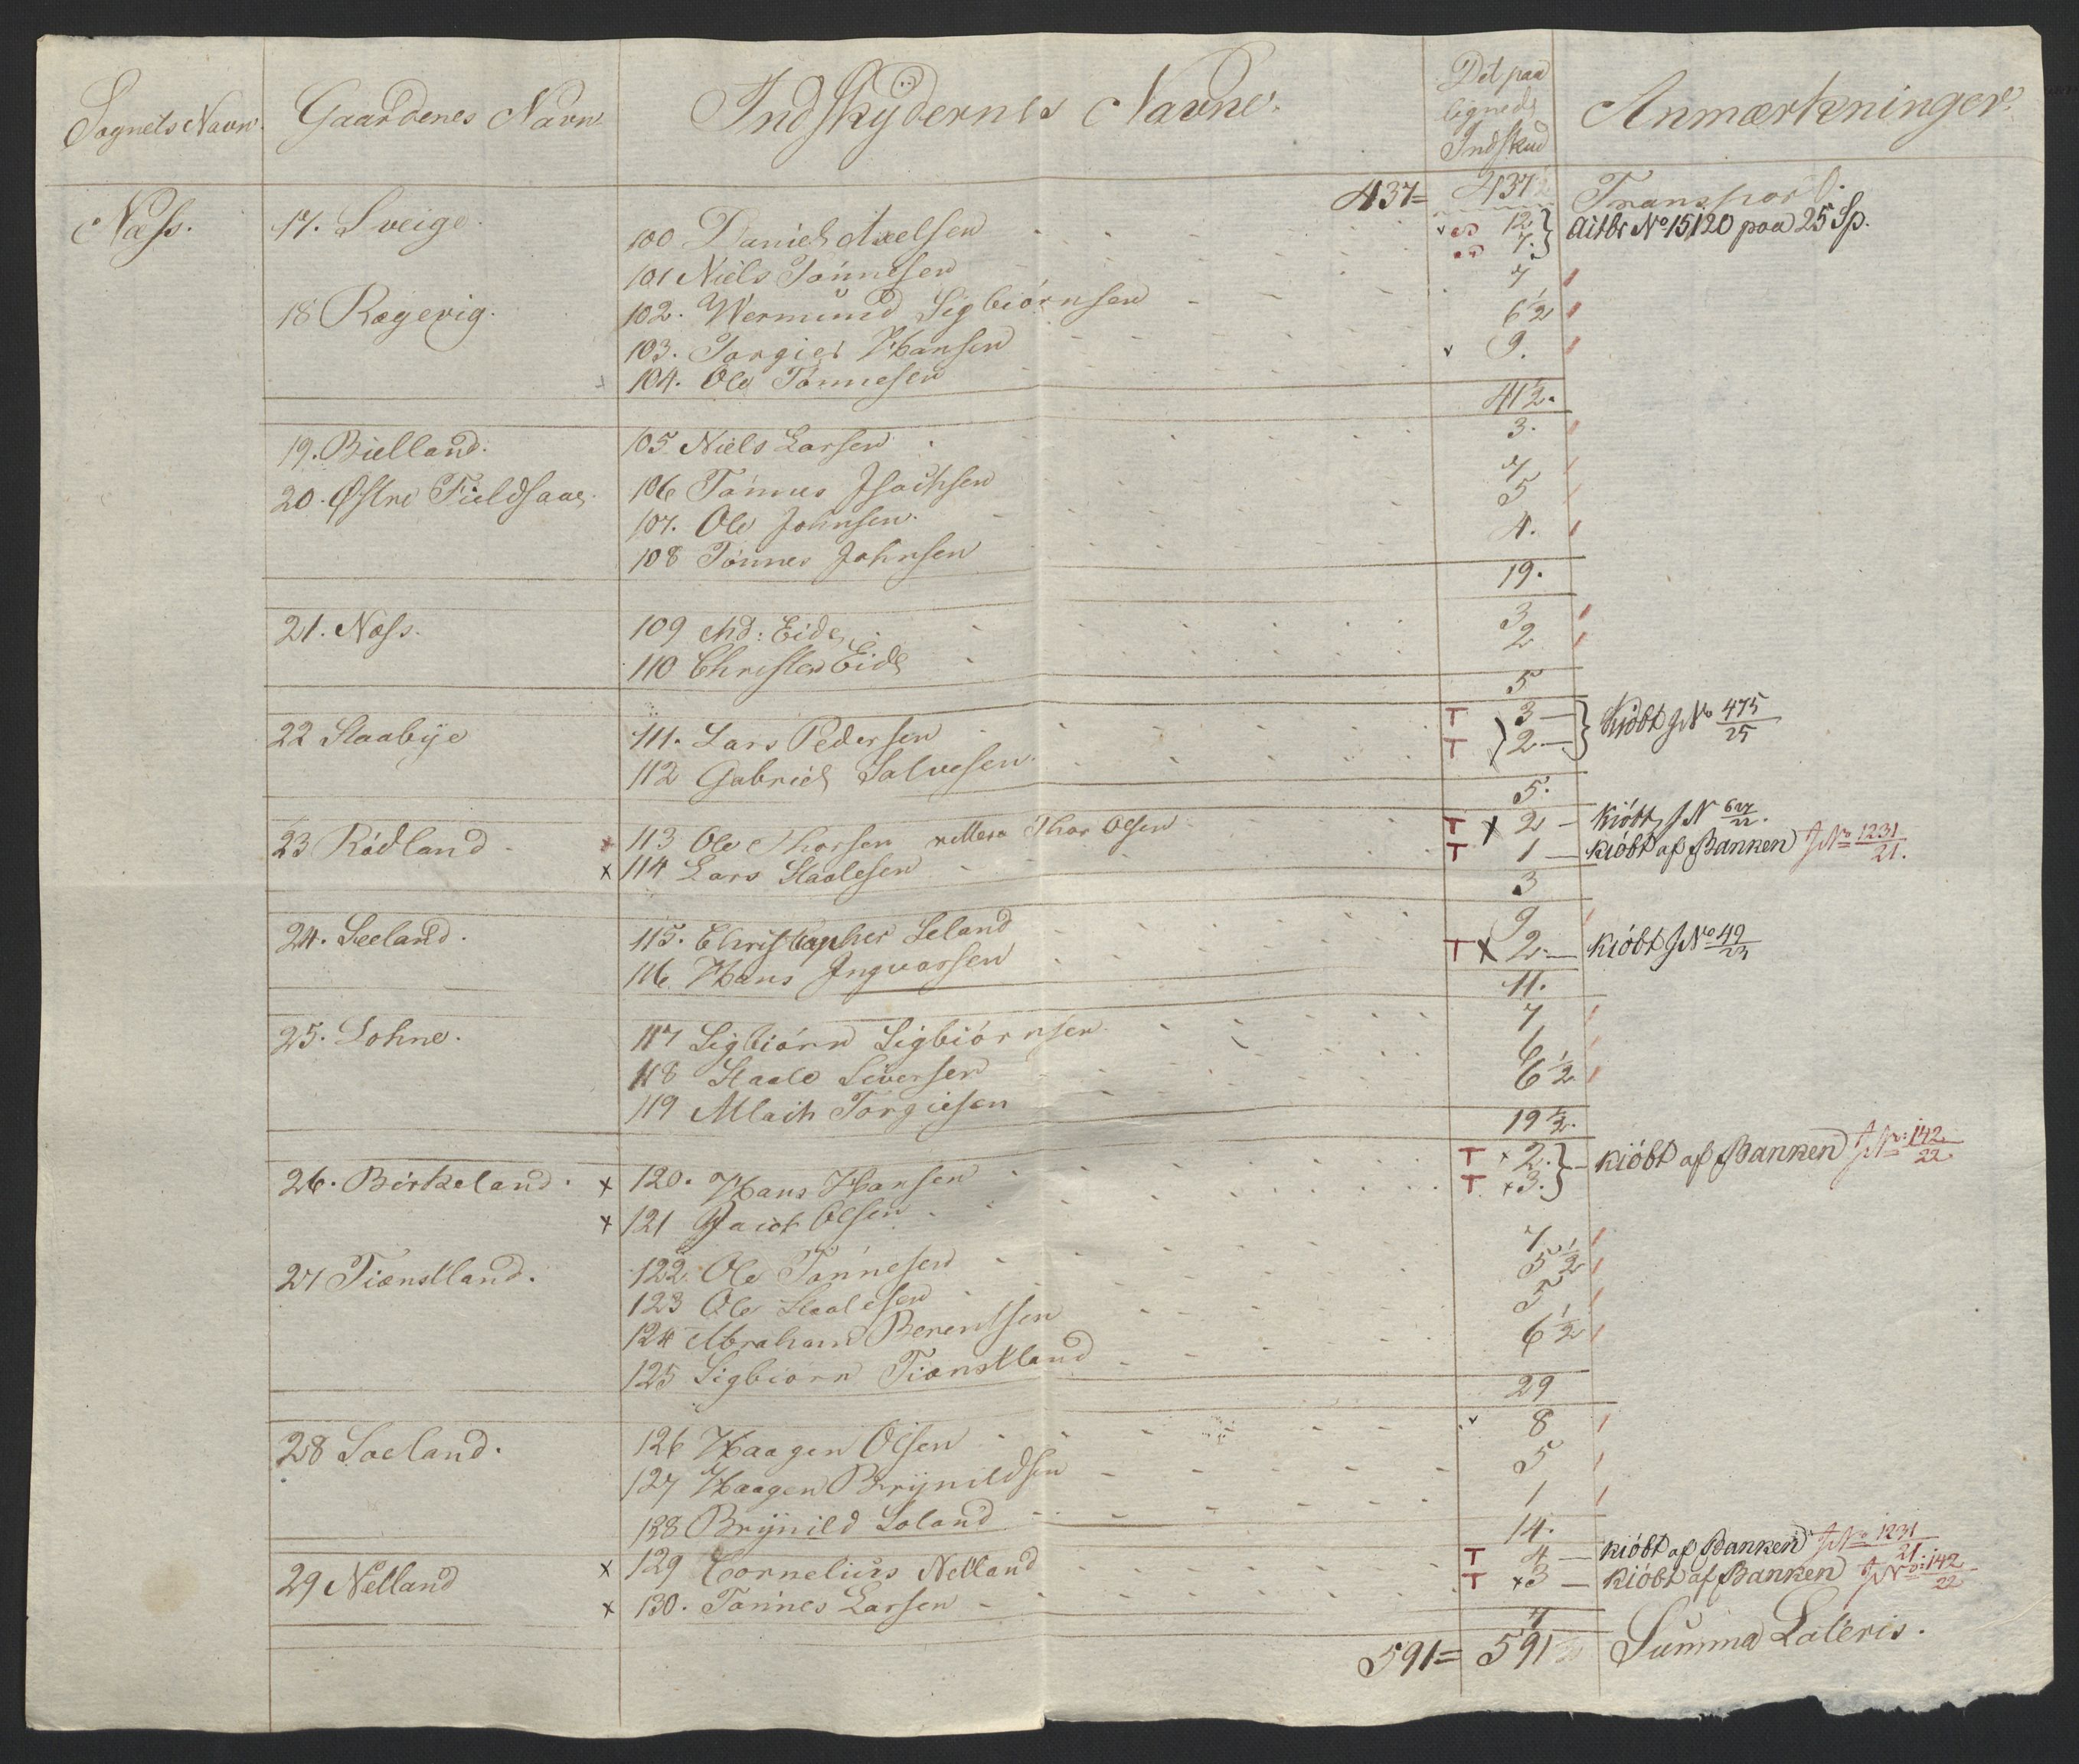 Sognets Navn. Gaardenes Navn. Indskÿdernes Navne. Det paa lignede Indskud Anmærkninger.
437= 437 Transport.
Næss. 17. Sveige. 100 Daniel Axelsen 12 } aitbr No 15120 paa 25 Sp.
101 Niels Tønnesen 7. }
18 Rægevig. 102. Wermund Sigbiørnsen 7
103. Torgier Hansen 6 1/2
x 104. Ole Tønnesen v 9.
41 1/2.
19. Bielland. 105 Niels Larsen 3.
20. Østre Fieldsaae. 106 Tønnes Isachsen 7
107. Ole Johnsen. 5
108 Tønnes Johnsen 4.
19.
21. Næss. 109 Ad: Eide 3
110 Christen Eide 2
5
22 Staabye 111. Lars Pedersen T 3 — } kiøbt J No 475/25
112 Gabriel Salvesen T 2. — }
5.
23 Rødland x 113 Ole Thorsen rettere Thor Olsen T x 2 — kiøbt J N 627/22.
x 114 Lars Staalesen T 1 — kiøbt af Banken J No 1231/21.
3
24. Seeland. 115. Christopher Seland 9
116 Hans Ingvarssen T x 2. — kiøbt J No 49/23
11.
25. Lohne. 117 Sigbiørn Sigbiørnsen 7
118 Staale Siversen 6
119 Alach Torgiesen 6 1/2
19 1/2.
26. Birkeland. x 120. Hans Hansen T x 2. } — kiøbt af Banken J No: 142/22.
x 121 Jacob Olsen T x 3. }
27 Tiønstland. 122. Ole Tønnesen 7
123 Ole Staalesen 5 1/2
124 Abraham Berentsen 5
125 Sigbiørn Tiønstland 6 1/2
29
28 Soeland. 126 Haagen Olsen v 8
127 Haagen Brynildsen 5
128 Brÿnild Soland 1
14.
29 Nelland x 129 Cornelius Nelland T 4 — kiøbt af Banken J No 1231/21.
x 130. Tønnes Larsen T x 3 — kiøbt af Banken J No: 142/22
7
591= 591 Summa Lateris.